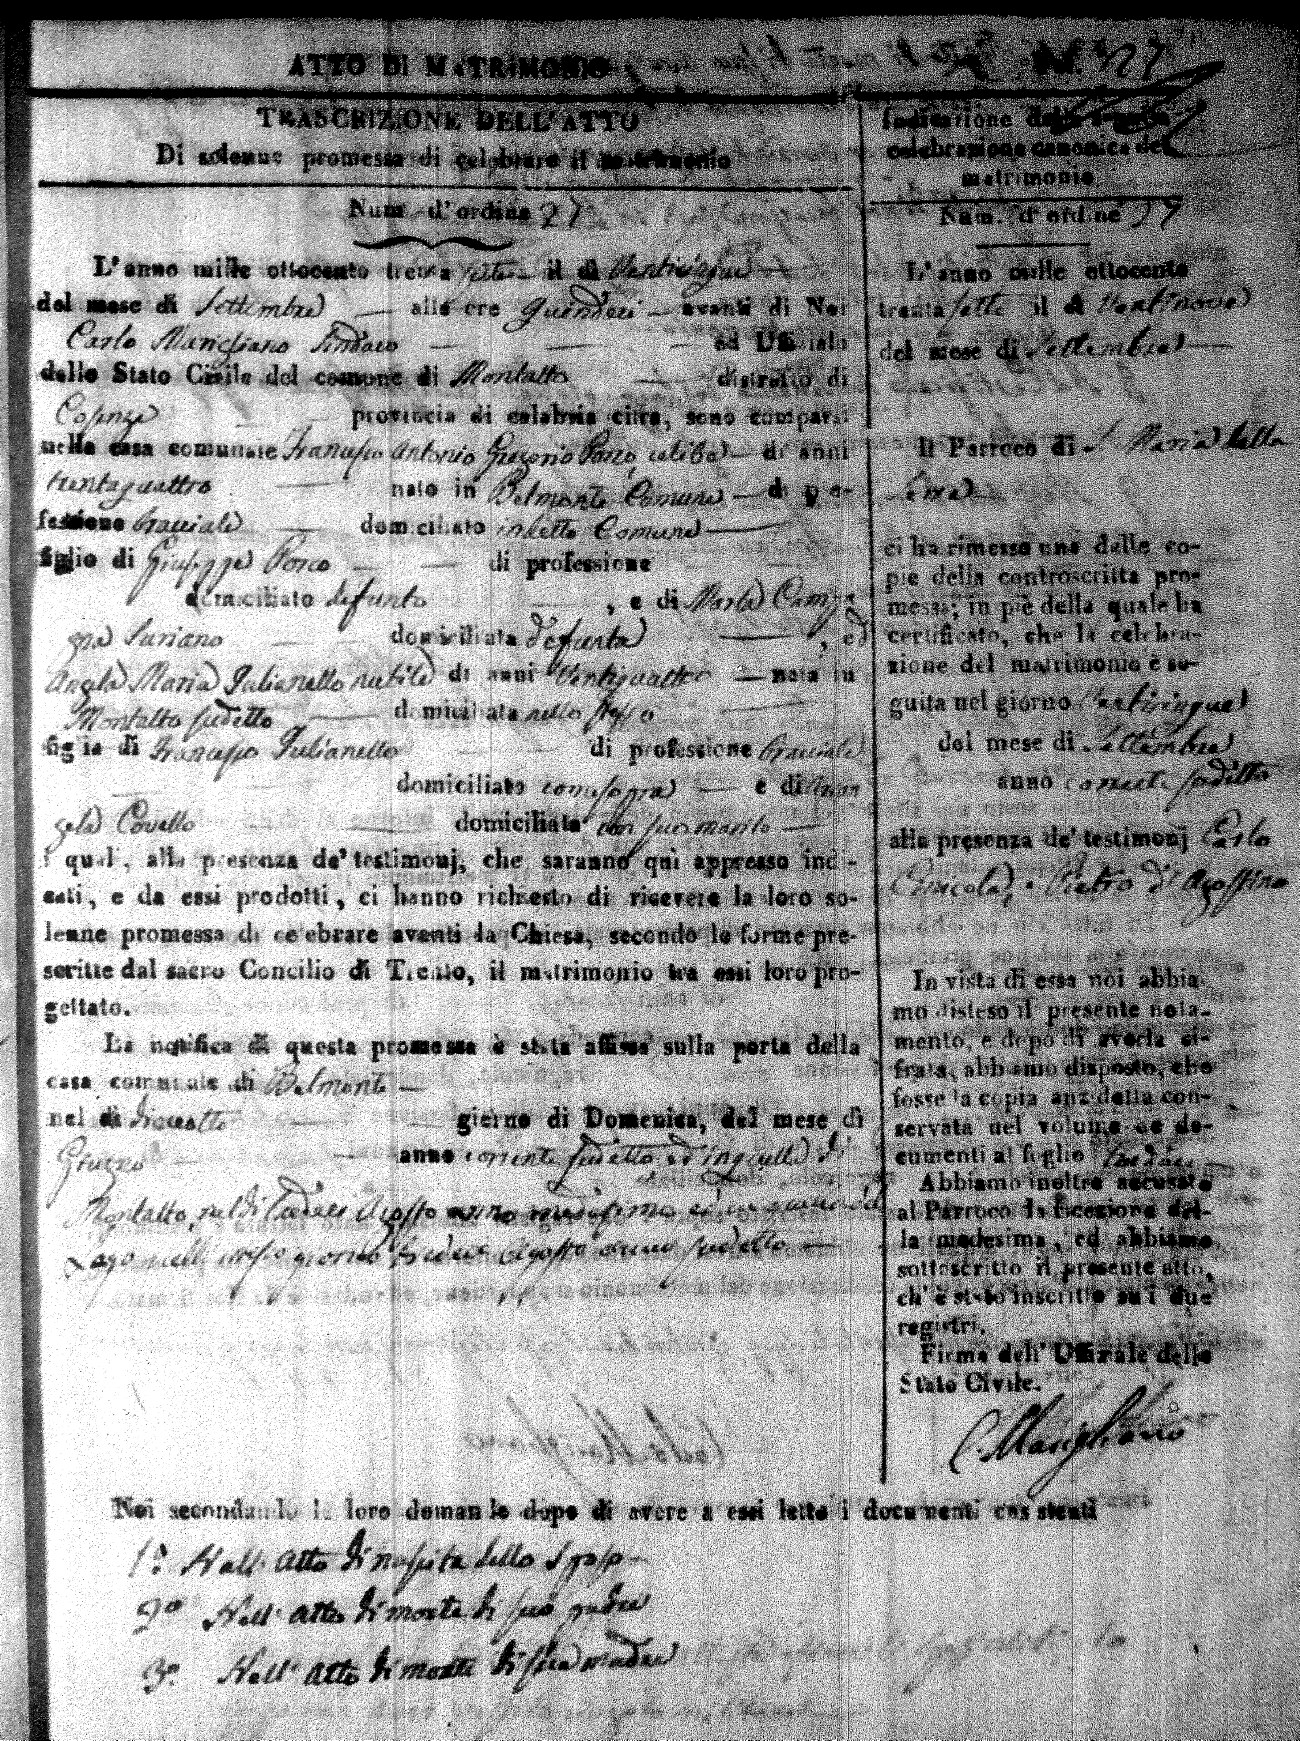 ATTO DI MATRIMONIO
N. 27
TRASCRIZIONE DELL'ATTO
Di solenne promessa di celebrare il matrimonio
Num. d'ordine 27
L'anno mille ottocento trenta sette il dì Venticinque
del mese di Settembre alle ore quindeci avanti di Noi
Carlo Sindaco ed Ufiziale
dello Stato Civile del comune di Montalto distretto di
Cosenza provincia di calabria citra, sono comparsi
nella casa comunale Francesco Antonio Gregorio Porco celibe di anni
trentaquattro nato in Belmonte Comune di pro-
fessione bracciale domiciliato in detto Comune
figlio di Giuseppe Porco di professione
domiciliato defunto , e di Maria
Suriano domiciliata defunta , ed
Angela Maria Julianello nubile di anni Ventiquattro nata in
Montalto sudetto domiciliata nello stesso
figlia di Francesco Julianello di professione bracciale
domiciliato come sopra e di An-
gela Covello domiciliata con suo marito
i quali, alla presenza de' testimonj, che saranno quì appresso indi-
cati, e da essi prodotti, ci hanno richiesto di ricevere la loro so-
lenne promessa di celebrare avanti la Chiesa, secondo le forme pre-
scritte dal sacro Concilio di Trento, il matrimonio tra essi loro pro-
gettato.
La notifica di questa promessa è stata affissa sulla porta della
casa comunale di Belmonte
nel dì dieciotto giorno di Domenica, del mese di
Giugno anno corrente sudetto ed in quella di
Montalto, nel dì tredeci Agosto anno ed in quella di
Lago nello stesso giorno tredeci Agosto anno sudetto
Indicazione della
celebrazione canonica del
matrimonio
Num. d'ordine 27
L'anno mille ottocento
trenta sette il dì Ventinove
del mese di Settembre
Il Parroco di S. Maria della
Serra
ci ha rimesso una delle co-
pie della controscritta pro-
messa; in piè della quale ha
certificato, che la celebra-
zione del matrimonio è se-
guita nel giorno Venticinque
del mese di Settembre
anno corrente sudetto
alla presenza de' testimonj Carlo
e Pietro d'Agostino
In vista di essa noi abbia-
mo disteso il presente nota-
mento, e dopo di averla ci-
frata, abbiamo disposto, che
fosse la copia anzidetta con-
servata nel volume de do-
cumenti al foglio
Abbiamo inoltre accusato
al Parroco la ricezione del-
la medesima, ed abbiamo
sottoscritto il presente atto,
ch'è stato inscritto su i due
registri.
Firma dell' Ufiziale dello
Stato Civile.
Noi secondando le loro domande dopo di avere a essi letto i documenti consistenti
1.° Nell' atto di nascita dello Sposo
2° Nell' atto di morte di suo padre
3.° Nell' atto di morte di sua madre